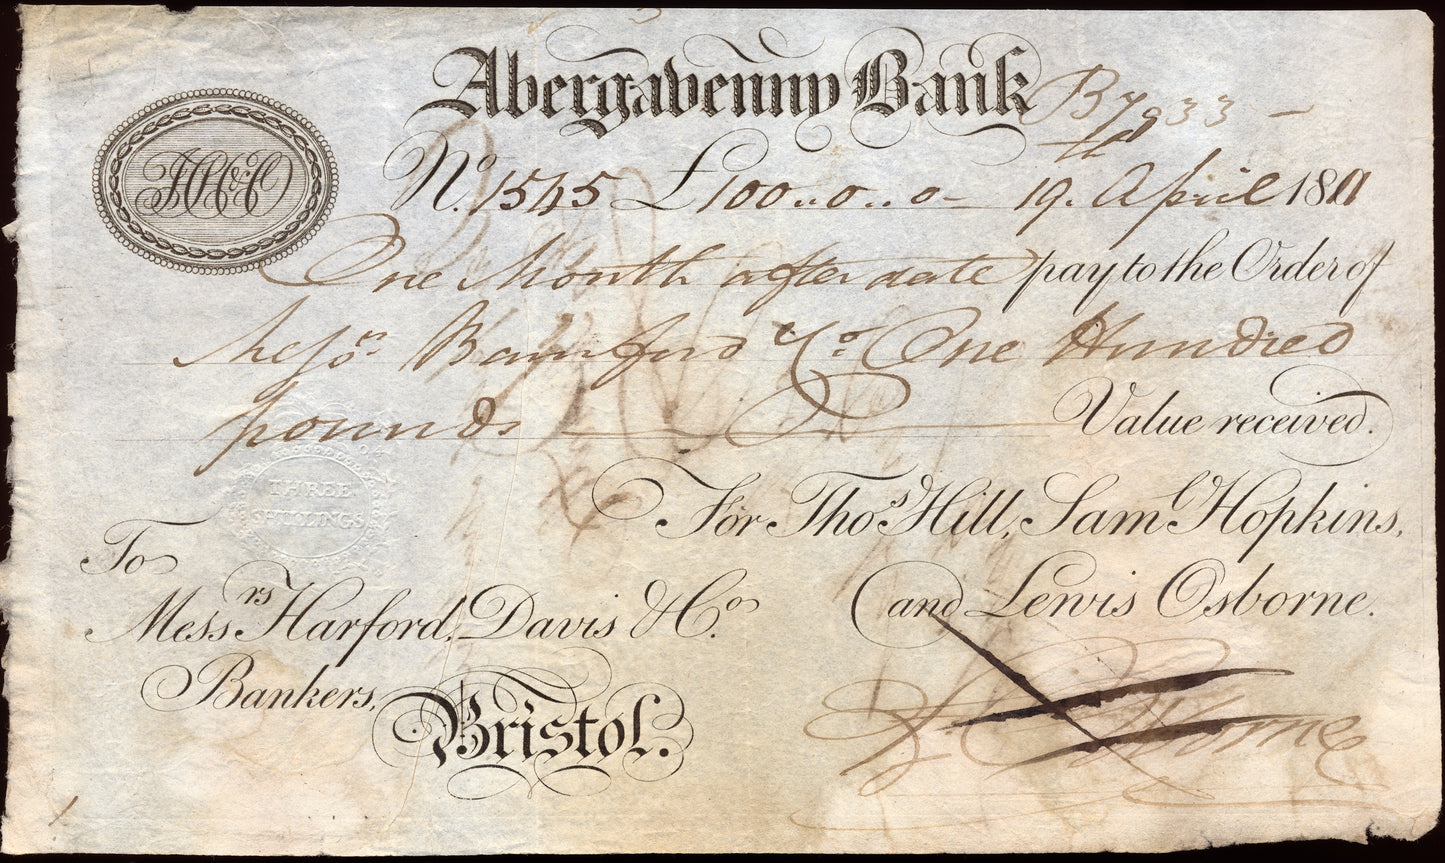 Abergavenny Bank
B 7933 –
No. 1545 £100..0..0– 19. April 1811
HO&C
One Month after date pay to the Order of
Messrs. Bamford & Co. One Hundred
pounds Value received.
THREE
SHILLINGS
For Thos. Hill, Saml. Hopkins,
and Lewis Osborne.
To
Messrs Harford, Davis & Co.
Bankers,
Bristol.
Osborne